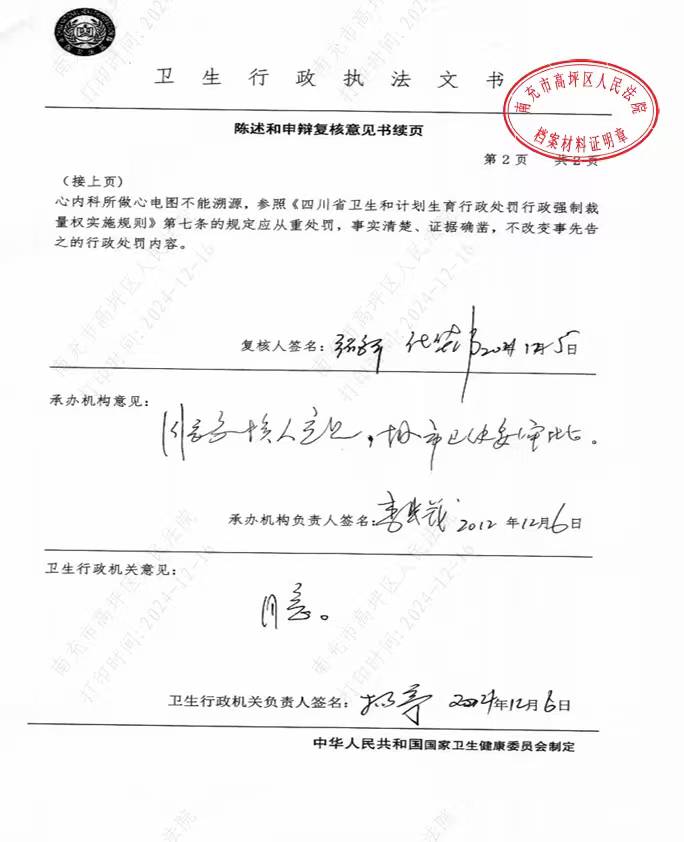 卫生行政执法文书
南充市高坪区人民法院
档案材料证明章
陈述和申辩复核意见书续页
第2页 共2页
（接上页）
心内科所做心电图不能溯源，参照《四川省卫生和计划生育行政处罚行政强制裁
量权实施规则》第七条的规定应从重处罚，事实清楚、证据确凿，不改变事先告
之的行政处罚内容。
复核人签名： 月5日
承办机构意见：
同意复核人意见，报市卫健委审批。
承办机构负责人签名： 2012年12月6日
卫生行政机关意见：
同意。
卫生行政机关负责人签名： 2024年12月6日
中华人民共和国国家卫生健康委员会制定
南充市高坪区人民法院
打印时间：2024-12-16